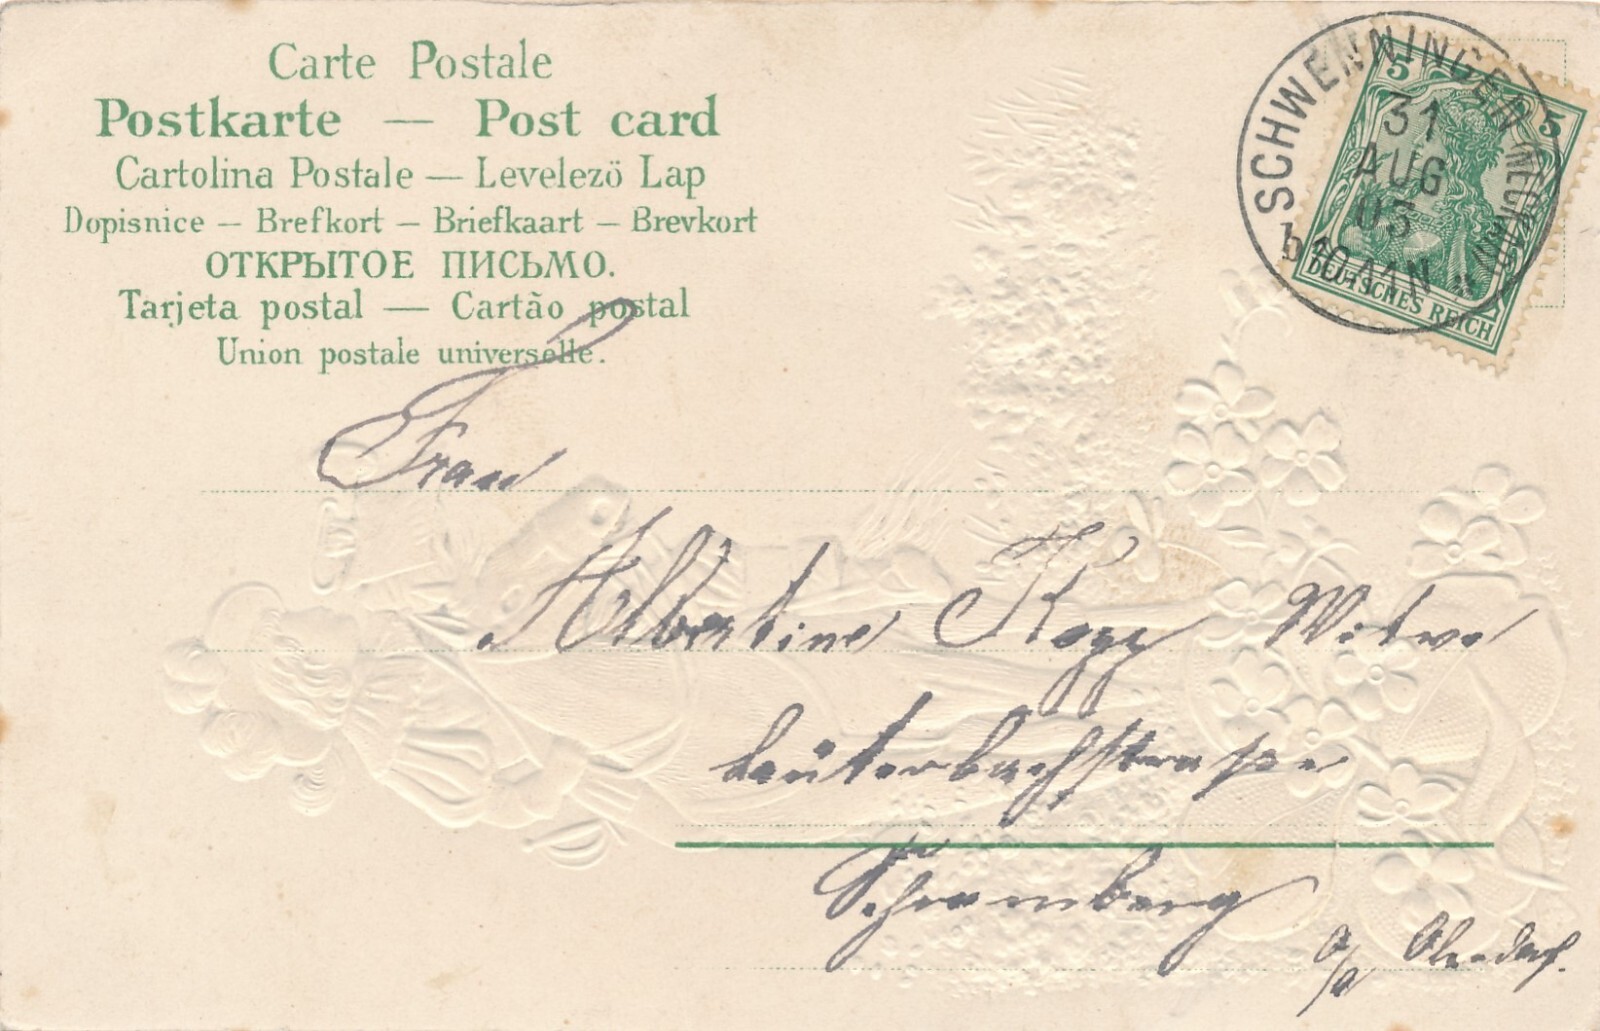 Carte Postale
Postkarte — Post card
Cartolina Postale — Levelezö Lap
Dopisnice — Brefkort — Briefkaart — Brevkort
ОТКРЫТОЕ ПИСЬМО.
Tarjeta postal — Cartão postal
Union postale universelle.
SCHWENNINGEN (NECKAR)
31
AUG
03
b 10-11N *
5 5
DEUTSCHES REICH
Frau
Albertine Witwe
Lauterbachstraße
Schramberg